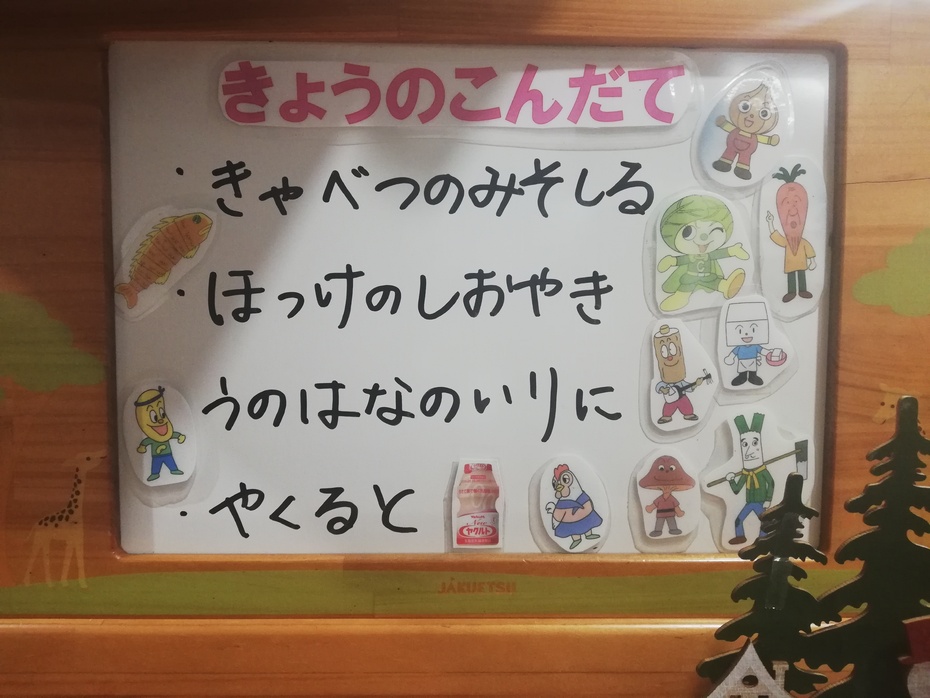 きょうのこんだて
・きゃべつのみそしる
・ほっけのしおやき
うのはなのいりに
・やくると
ヤクルト
JAKUETSU